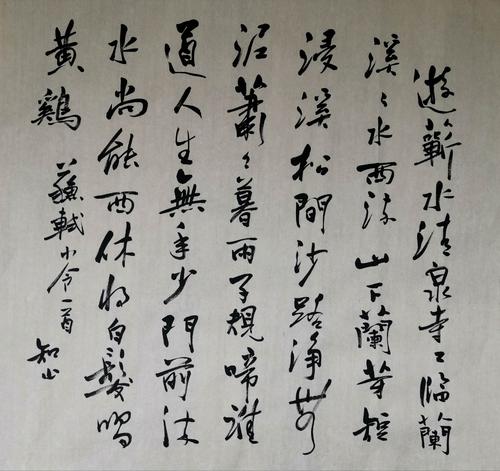 遊蘄水清泉寺〻臨蘭
溪〻水西流山下蘭芽短
浸溪松間沙路淨無
泥蕭〻暮雨子規啼誰
道人生無再少門前流
水尚能西休將白髮唱
黃鷄 蘇軾小令一首 知山